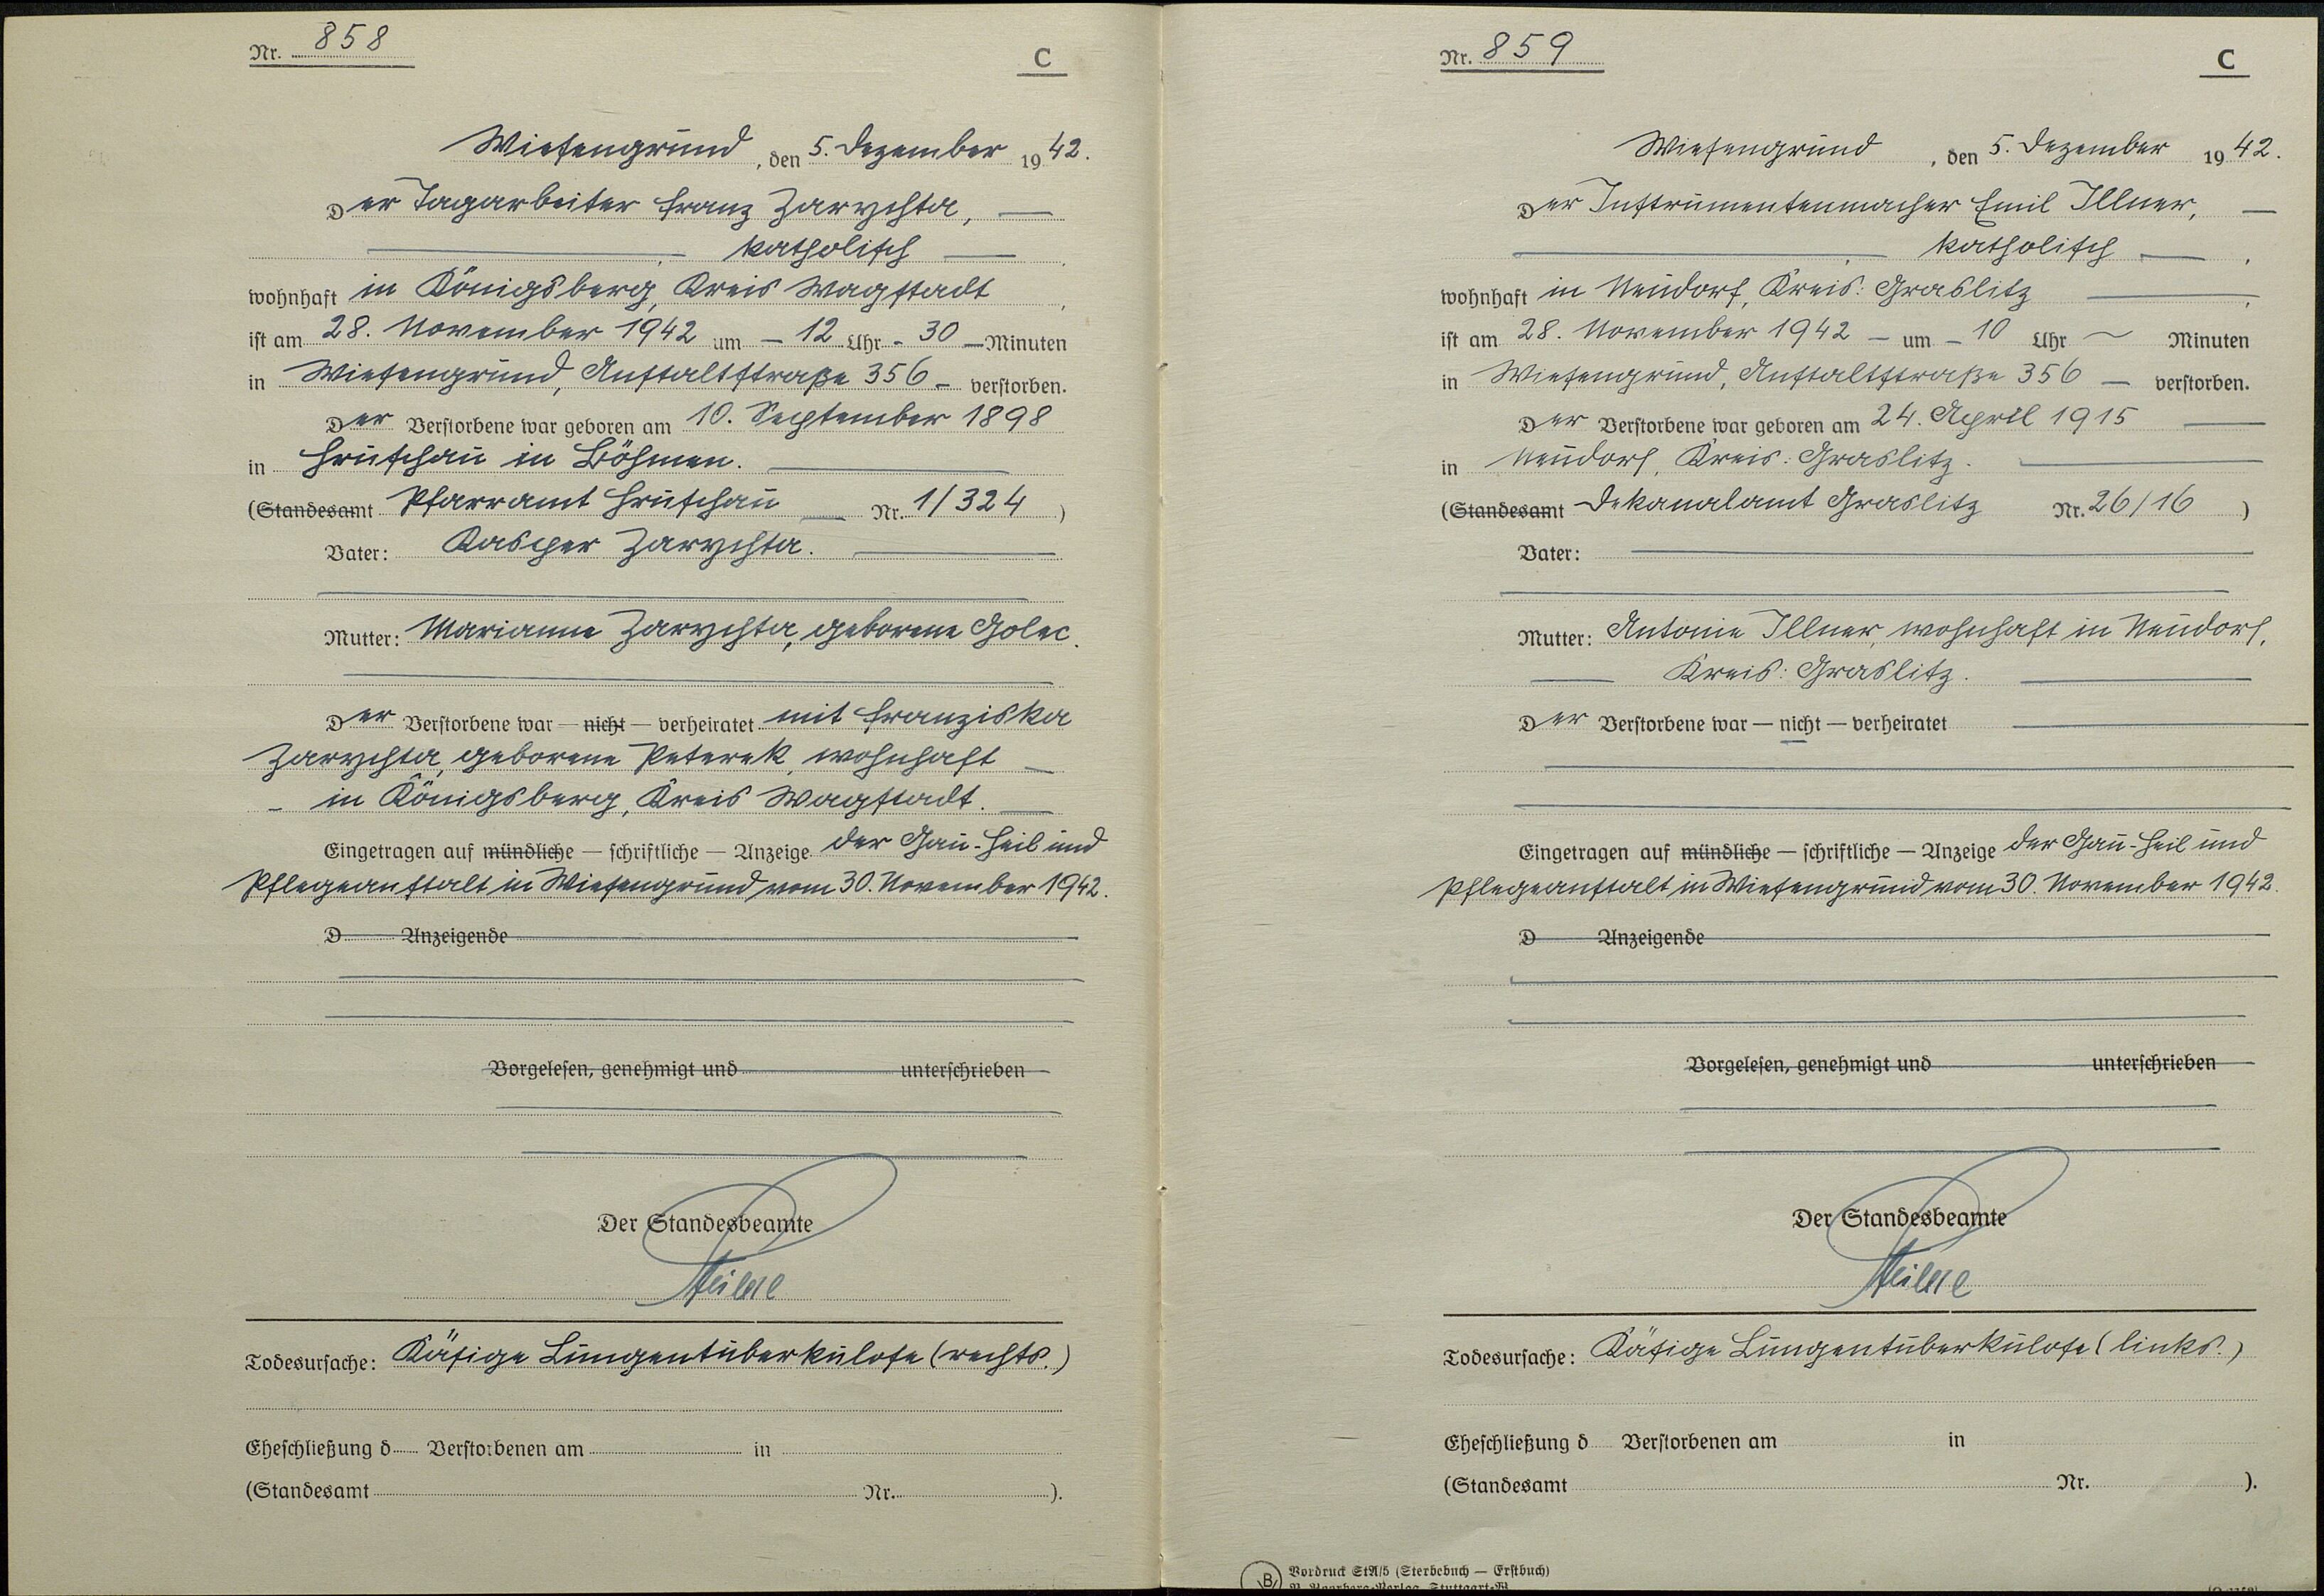 Nr. 858
C
Wiesengrund, den 5. Dezember 1942.
Der Tagarbeiter Franz Zarychta, —
— katholisch —
wohnhaft in Königsberg, Kreis Wagstadt,
ist am 28. November 1942 um — 12 Uhr - 30 — Minuten
in Wiesengrund, Anstaltstraße 356 — verstorben.
Der Verstorbene war geboren am 10. September 1898
in Hruschau in Böhmen. —
(Standesamt Pfarramt Hruschau — Nr. 1/324)
Vater: Kasper Zarychta. —
Mutter: Marianne Zarychta, geborene Golec.
Der Verstorbene war — nicht — verheiratet mit Franziska
Zarychta, geborene Peterek, wohnhaft —
- in Königsberg, Kreis Wagstadt. —
Eingetragen auf mündliche — schriftliche — Anzeige der Gau-Heil und
Pflegeanstalt in Wiesengrund vom 30. November 1942.
D Anzeigende
Vorgelesen, genehmigt und unterschrieben
Der Standesbeamte
Todesursache: Käsige Lungentuberkulose (rechts.)
Eheschließung d Verstorbenen am in
(Standesamt Nr. ).
Nr. 859
C
Wiesengrund, den 5. Dezember 1942.
Der Instrumentenmacher Emil Illner, —
— katholisch —,
wohnhaft in Neudorf, Kreis: Graslitz —,
ist am 28. November 1942 — um — 10 Uhr ~ Minuten
in Wiesengrund, Anstaltstraße 356 — verstorben.
Der Verstorbene war geboren am 24. April 1915 —
in Neudorf, Kreis: Graslitz. —
(Standesamt Dekanalamt Graslitz Nr. 26/16)
Vater: —
Mutter: Antonie Illner, wohnhaft in Neudorf,
— Kreis: Graslitz. —
Der Verstorbene war — nicht — verheiratet —
Eingetragen auf mündliche — schriftliche — Anzeige der Gau-Heil und
Pflegeanstalt in Wiesengrund vom 30. November 1942.
D Anzeigende
Vorgelesen, genehmigt und unterschrieben
Der Standesbeamte
Todesursache: Käsige Lungentuberkulose (links.)
Eheschließung d Verstorbenen am in
(Standesamt Nr. ).
B Vordruck StA/5 (Sterbebuch — Erstbuch)